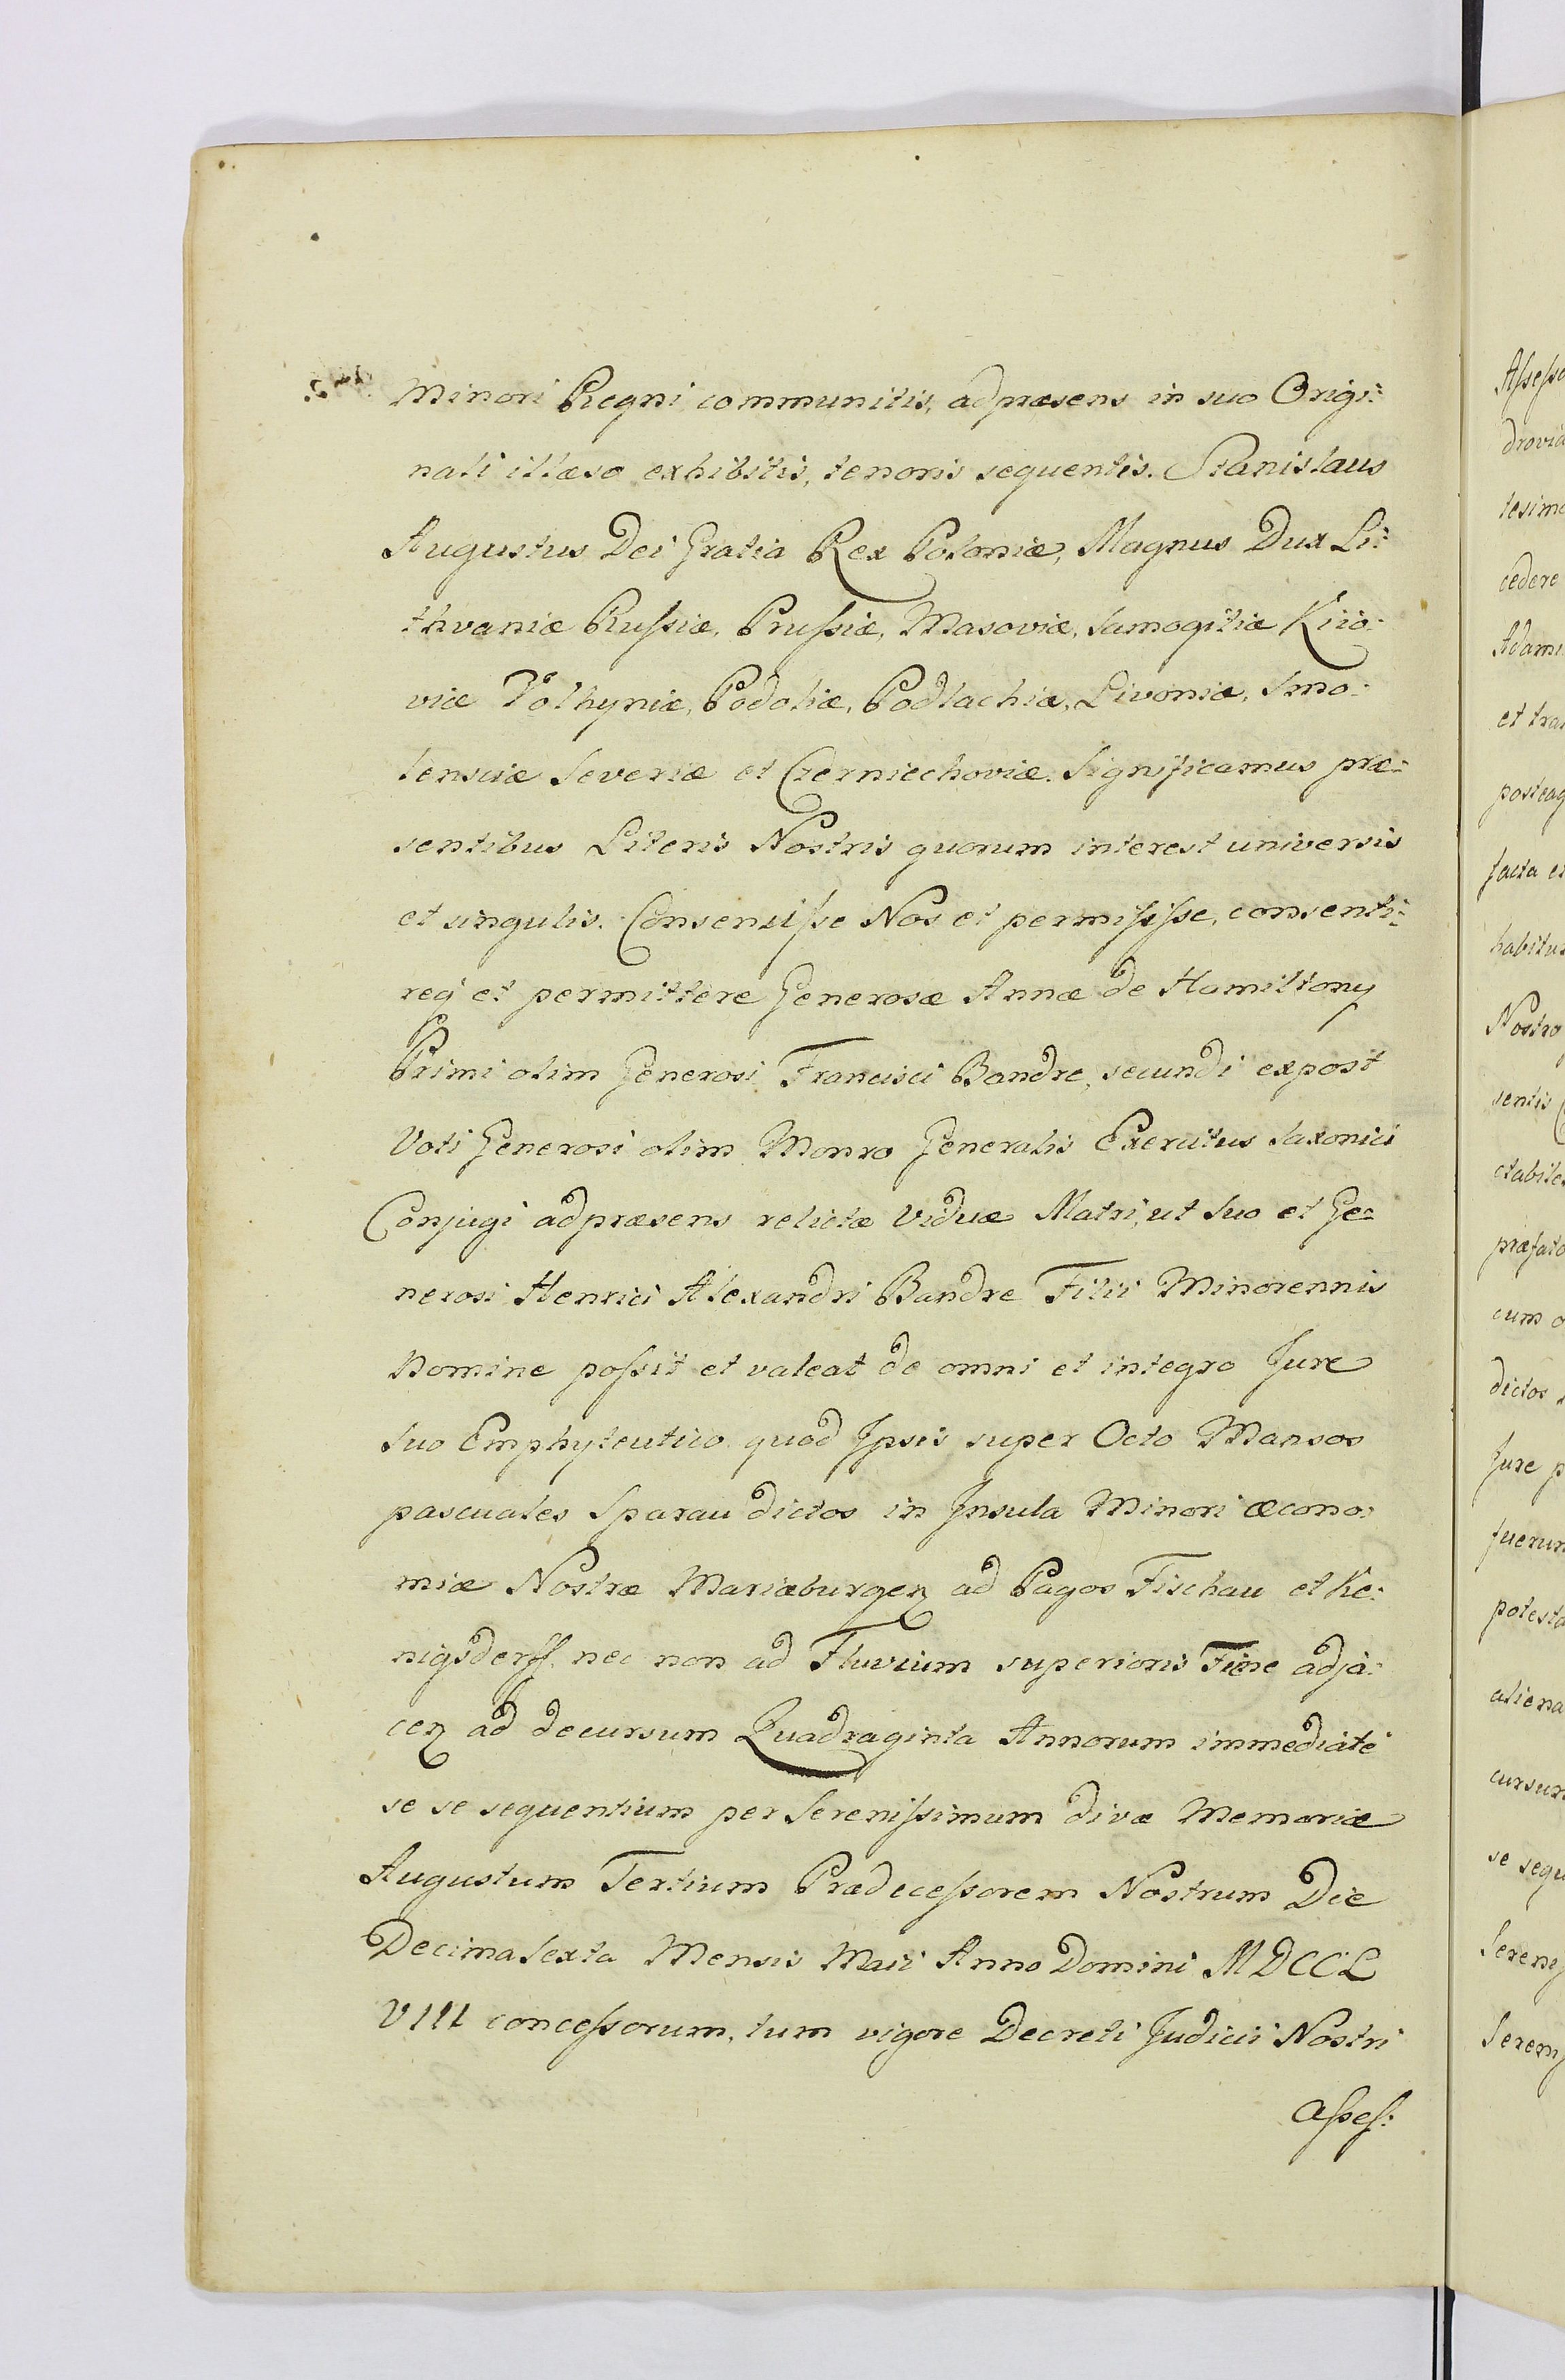 Minori Regni communitis, ad præsens in suo Origi:
nali illæso exhibitis, tenoris sequentis. Stanislaus
Augustus Dei Gratia Rex Poloniæ, Magnus Dux Li:
thvaniæ Rußiæ, Prußiæ, Masoviæ, Samogitiæ Kiio:
viæ Volhyniæ, Podoliæ, Podlachiæ, Livoniæ, Smo:
lensciæ Severiæ et Czerniechoviæ. Significamus præ:
sentibus Literis Nostris quorum interest universis
et singulis. Consensiſse Nos et permiſiſse, consenti:
req' et permittere Generosæ Annæ de Hamiltony
Primi olim Generosi Francisci Bandre, secundi expost
Voti Generosi olim Monro Generalis Exercitus Saxonici
Conjugi ad præsens relictæ Viduæ Matri, ut Suo et Ge=
nerosi Henrici Alexandri Bandre Filii Minorennis
Nomine poſsit et valeat de omni et integro Jure
Suo Emphyteutico quod Ipsis super Octo Mansos
pascuales Sparau dictos in Insula Minori æcono:
miæ Nostræ Mariæburgen ad Pagos Fischau et Ke:
nigsderff. nec non ad Fluvium superioris Fiene adja:
cen ad decursum Quadraginta Annorum immediate
se se sequentium per Sereniſsimum divæ Memoriæ
Augustum Tertium Prædeceſsorem Nostrum Die
Decima Sexta Mensis Maii Anno Domini MDCCL
VIII conceſsorum, tum vigore Decreti Judicii Nostri
Aſseſ:
Aſseſso
drovia
tesimo
cedere
Adami
et tra
posteaq
facta et
habitus
Nostro
sentis
ctabile
præfato
cum o
dictos
Jure p
fuerun
potesta
aliena
cursum
se sequ
Sereniſ
Sereniſ